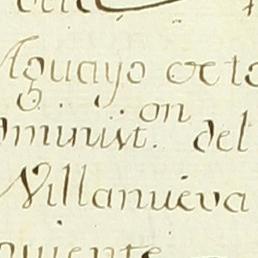 Aguayo octo
minist.on del
Villanueva
quiente